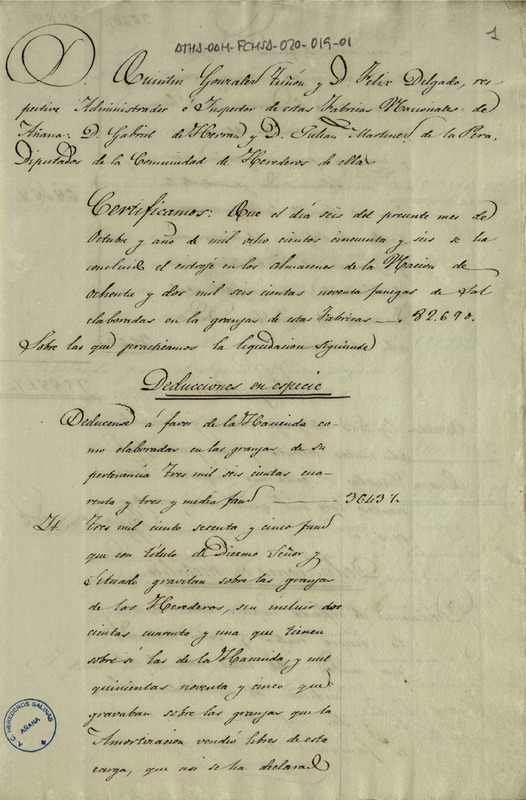 ATHA-DAH-FCHSA-020-019-01
1
D. Quintin Gonzalez Tuñón y D. Felix Delgado, res-
pective Administrador é Inspector de estas Fabricas Nacionales de
Añana: D. Gabriel de Herran y D. Julian Martinez de la Pera,
Diputados de la Comunidad de Herederos de ella
Certificamos: Que el dia seis del presente mes de
Octubre y año de mil ocho cientos cincuenta y seis se ha
concluido el entroje en los almacenes de la Nacion de
ochenta y dos mil seis cientas noventa fanegas de Sal
elaboradas en la granjas de estas Fabricas. 82.690.
Sobre las que practicamos la liquidacion siguiente
Deducciones en especie
Deducense á favor de la Hacienda co-
mo elaboradas en las granjas de su
pertenencia tres mil seis cientas cua-
renta y tres y media fans 3643½
Id. tres mil ciento sesenta y cinco fans
que con titulo de Diezmo Señor y
Situado gravitan sobre las granjas
de los Herederos, sin incluir dos
cientas cuarenta y una que tienen
sobre sí las de la Hacienda, y mil
quinientas noventa y cinco que
gravaban sobre las granjas que la
Amortizacion vendió libres de esta
carga, que asi se ha declarado
A.C. HEREDEROS SALINAS
AÑANA